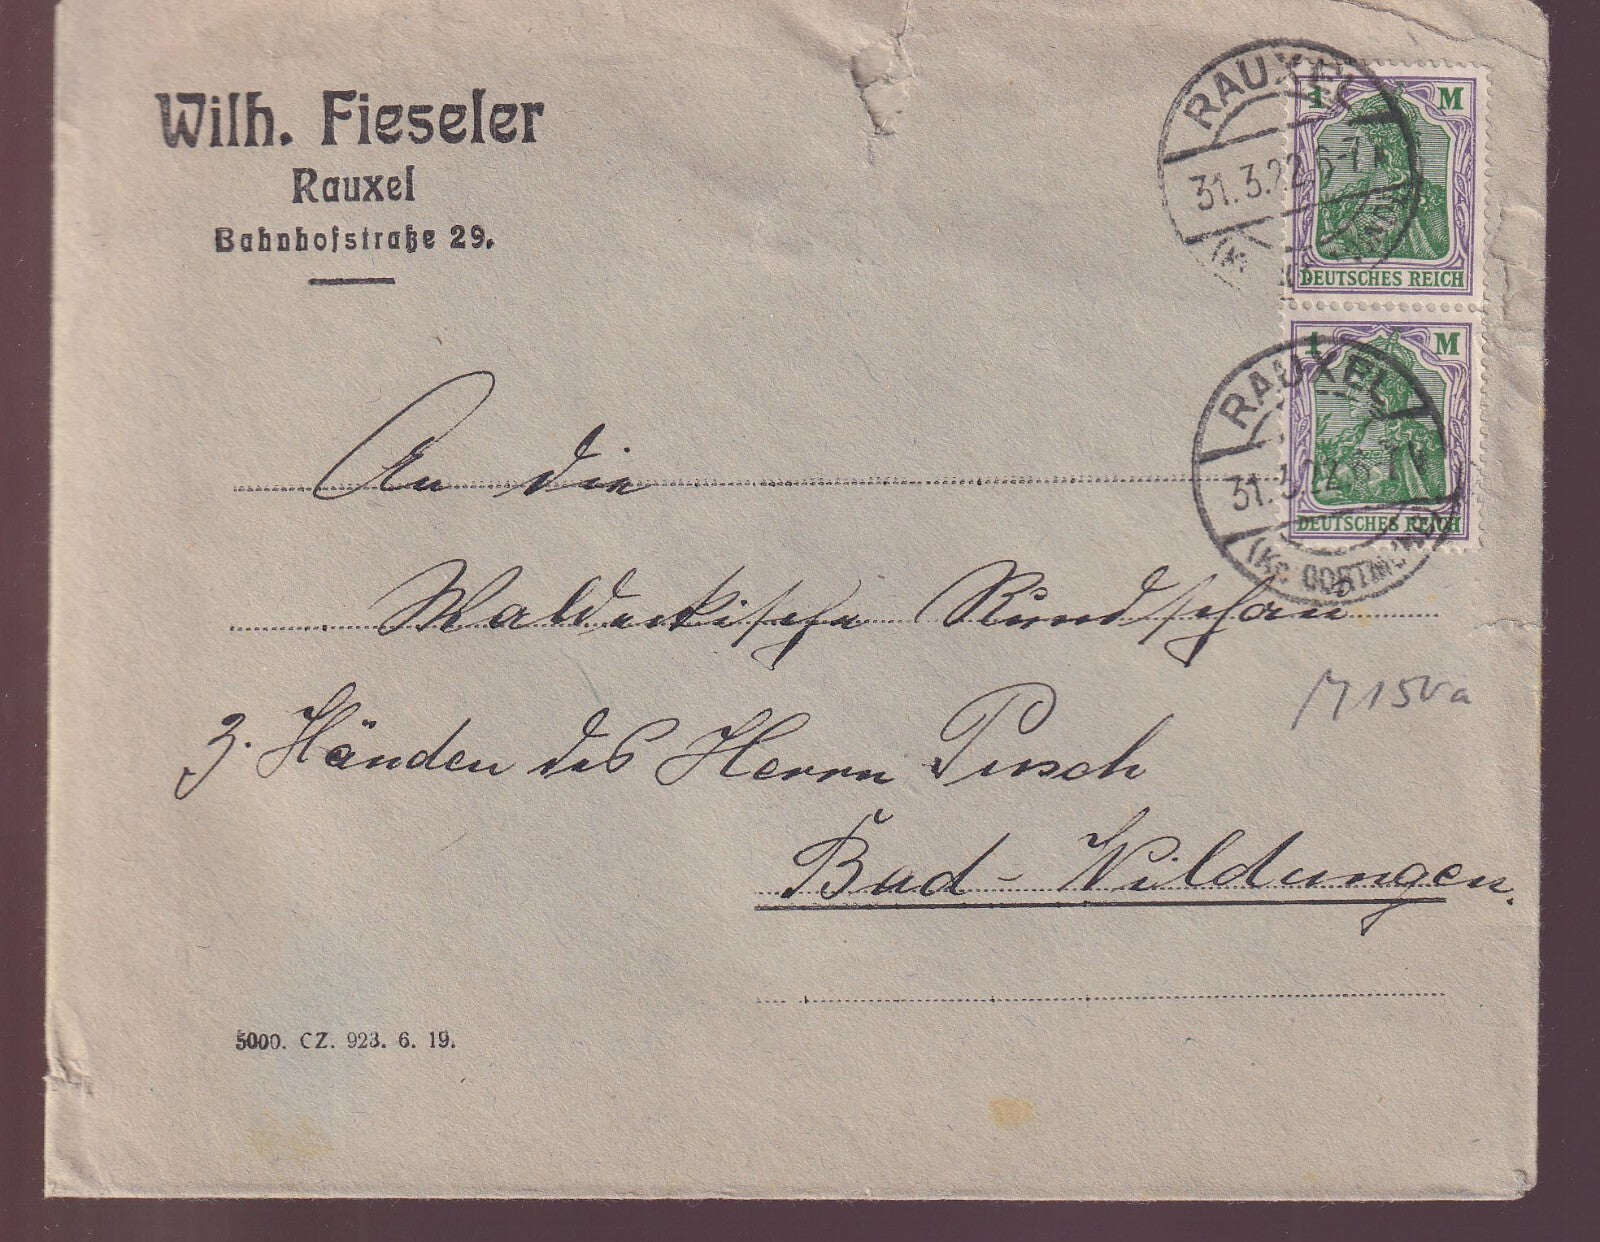 Wilh. Fieseler
Rauxel
Bahnhofstraße 29.
RAUXEL
31.3.22 6-7 N
1 M
DEUTSCHES REICH
1 M
DEUTSCHES REICH
RAUXEL
31.3.22 6-7 N
(Kr. DORTMUND)
An die
Waldeckische Rundschau
z. Händen des Herrn Pusch
Bad-Wildungen.
M 150 a
5000. CZ. 923. 6. 19.